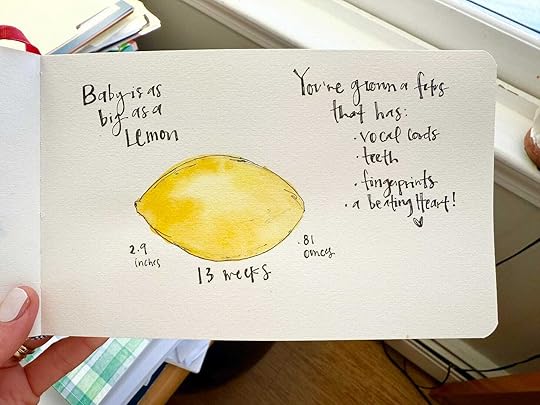 Baby is as
big as a
Lemon
You've grown a fetus
that has:
· vocal cords
· teeth
· fingerprints
· a beating Heart!
2.9
inches
13 weeks
.81
ounces